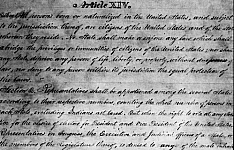 Article XIV.
persons born or naturalized in the United States, and subject
to the jurisdiction thereof, are citizens of the United States and of the State
wherein they reside. No State shall make or enforce any law which shall
abridge the privileges or immunities of citizens of the United States; nor shall
any State deprive any person of life, liberty, or property, without due process of
law; nor deny to any person within its jurisdiction the equal protection of
the laws.
Section 2. Representatives shall be apportioned among the several States
according to their respective numbers, counting the whole number of persons in
each State, excluding Indians not taxed. But when the right to vote at any
election for the choice of electors for President and Vice President of the United States,
Representatives in Congress, the Executive and Judicial officers of a State, or
the members of the Legislature thereof, is denied to any of the male